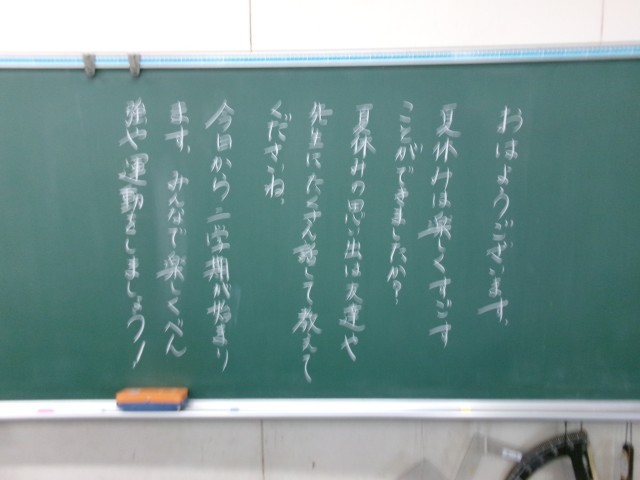 おはようございます。
夏休みは楽しくすごす
ことができましたか?
夏休みの思い出は友達や
先生にたくさん話して教えて
くださいね。
今日から二学期が始まり
ます。みんなで楽しくべん
強や運動をしましょう!